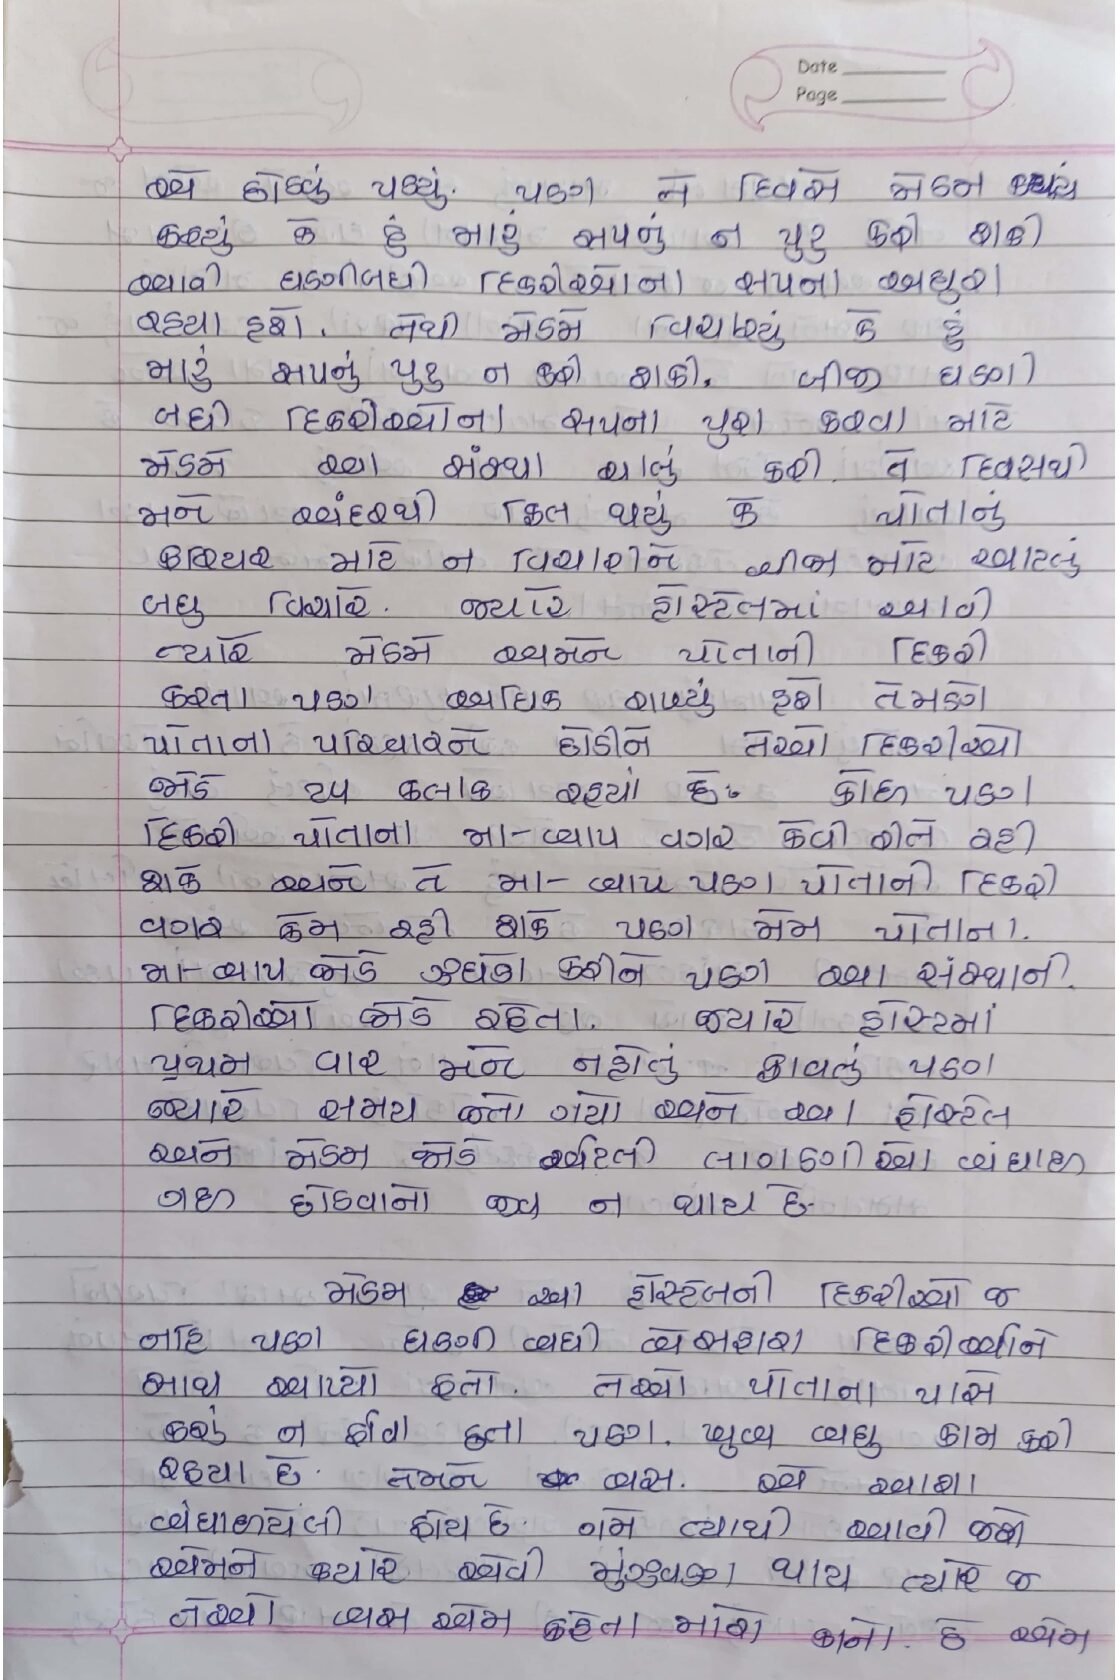 Date
Page
એ છોડવું પડ્યું. પણ તે દિવસે મેડમે
કહ્યું કે હું મારું સપનું ન પુરુ કરી શકી
આવી ઘણીબધી દિકરીઓના સપના અધુરા
રહ્યા હશે. તેથી મેડમે વિચાર્યું કે હું
મારું સપનું પુરુ ન કરી શકી. બીજી ઘણી
બધી દિકરીઓના સપના પુરા કરવા માટે
મેડમે આ સંસ્થા ચાલું કરી. તે દિવસથી
મને અંદરથી ફિલ થયું કે પોતાનું
કરિયર માટે ન વિચારીને બીજા માટે આટલું
બધુ વિચારે. જ્યારે હોસ્ટેલમાં આવી
ત્યારે મેડમે અમને પોતાની દિકરી
કરતા પણ અધિક રાખ્યું હશે તેમણે
પોતાના પરિવારને છોડીને તેઓ દિકરીઓ
જોડે ૨૫ કલાક રહ્યાં છે. કોઇ પણ
દિકરી પોતાના મા-બાપ વગર કેવી રીતે રહી
શકે અને તે મા-બાપ પણ પોતાની દિકરી
વગર કેમ રહી શકે પણ મેમ પોતાના.
મા-બાપ જોડે ઝઘડા કરીને પણ આ સંસ્થાની.
દિકરીઓ જોડે રહેતા. જ્યારે હોસ્ટમાં
પ્રથમ વાર મને નહોતું ફાવતું પણ
જ્યારે સમય જતો ગયો અને આ હોસ્ટેલ
અને મેડમ જોડે એટલી લાગણીઓ બંધાઇ
ગઇ છોડવાનો જીવ ન થાય છે.
મેડમ આ હોસ્ટેલની દિકરીઓ જ
નહિ પણ ઘણી બધી બેસહારા દિકરીઓને
સાથ આપ્યો હતો. તેઓ પોતાના પાસે
કશું ન હોવા છતા પણ. ખુબ બધુ કામ કરી
રહ્યા છે. તેમને બસ. એ આશા
બંધાઇયેલી હોય છે. ગમે ત્યાથી આવી જશે
એમને ક્યારે એવી મુંઝવણ થાય ત્યારે જ
તેઓ બસ એમ કહેતા મારો કાનો. છે એમ